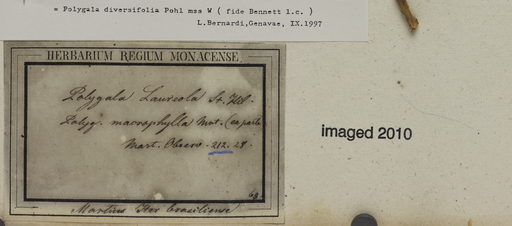 = Polygala diversifolia Pohl mss W ( fide Bennett l.c. )
L.Bernardi,Genavae, IX.1997
HERBARIUM REGIUM MONACENSE.
Polygala Laureola St. Hil.
Polyg. macrophylla Mst. (ex parte
Mart. Observ. 212. 28.
Martius Iter brasiliense
imaged 2010